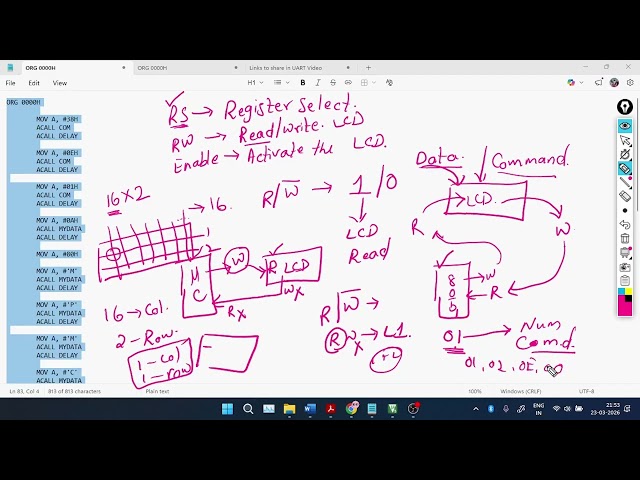 ORG 0000H
ORG 0000H
Links to share in UART Video
File
Edit
View
H1
B
I
ORG 0000H
MOV A, #38H
ACALL COM
ACALL DELAY
MOV A, #0EH
ACALL COM
ACALL DELAY
MOV A, #01H
ACALL COM
ACALL DELAY
MOV A, #0AH
ACALL MYDATA
ACALL DELAY
MOV A, #80H
MOV A, #'M'
ACALL MYDATA
ACALL DELAY
MOV A, #'P'
ACALL MYDATA
ACALL DELAY
MOV A, #'M'
ACALL MYDATA
ACALL DELAY
MOV A, #'C'
ACALL MYDATA
RS → Register Select.
RW → Read/Write LCD
Enable → Activate the LCD.
16 x 2
→ 16.
R/W̅ → 1/0
LCD
Read
Data
Command
LCD.
R
W
M
C
W
R LCD
Rx
Wx
16 → Col.
2 - Row.
1 - Col
1 - row
R/W̅ →
R Wx → L1
8
0
5
W
R
01 → Num
Comd.
01, 02, 0E,
Ln 83, Col 4
813 of 813 characters
Plain text
100%
Windows (CRLF)
UTF-8
ENG
IN
21:53
23-03-2026